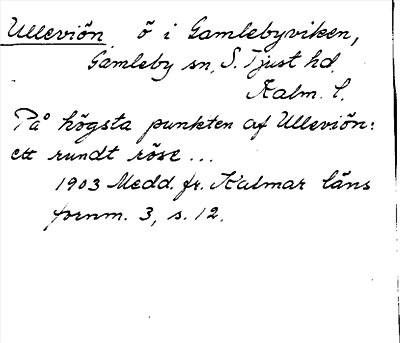 Ulleviön ö i Gamlebyviken,
Gamleby sn, S. Tjust hd.
Kalm. l.
På högsta punkten af Ulleviön:
ett rundt röse ...
1903 Medd. fr. Kalmar läns
fornm. 3, s. 12.